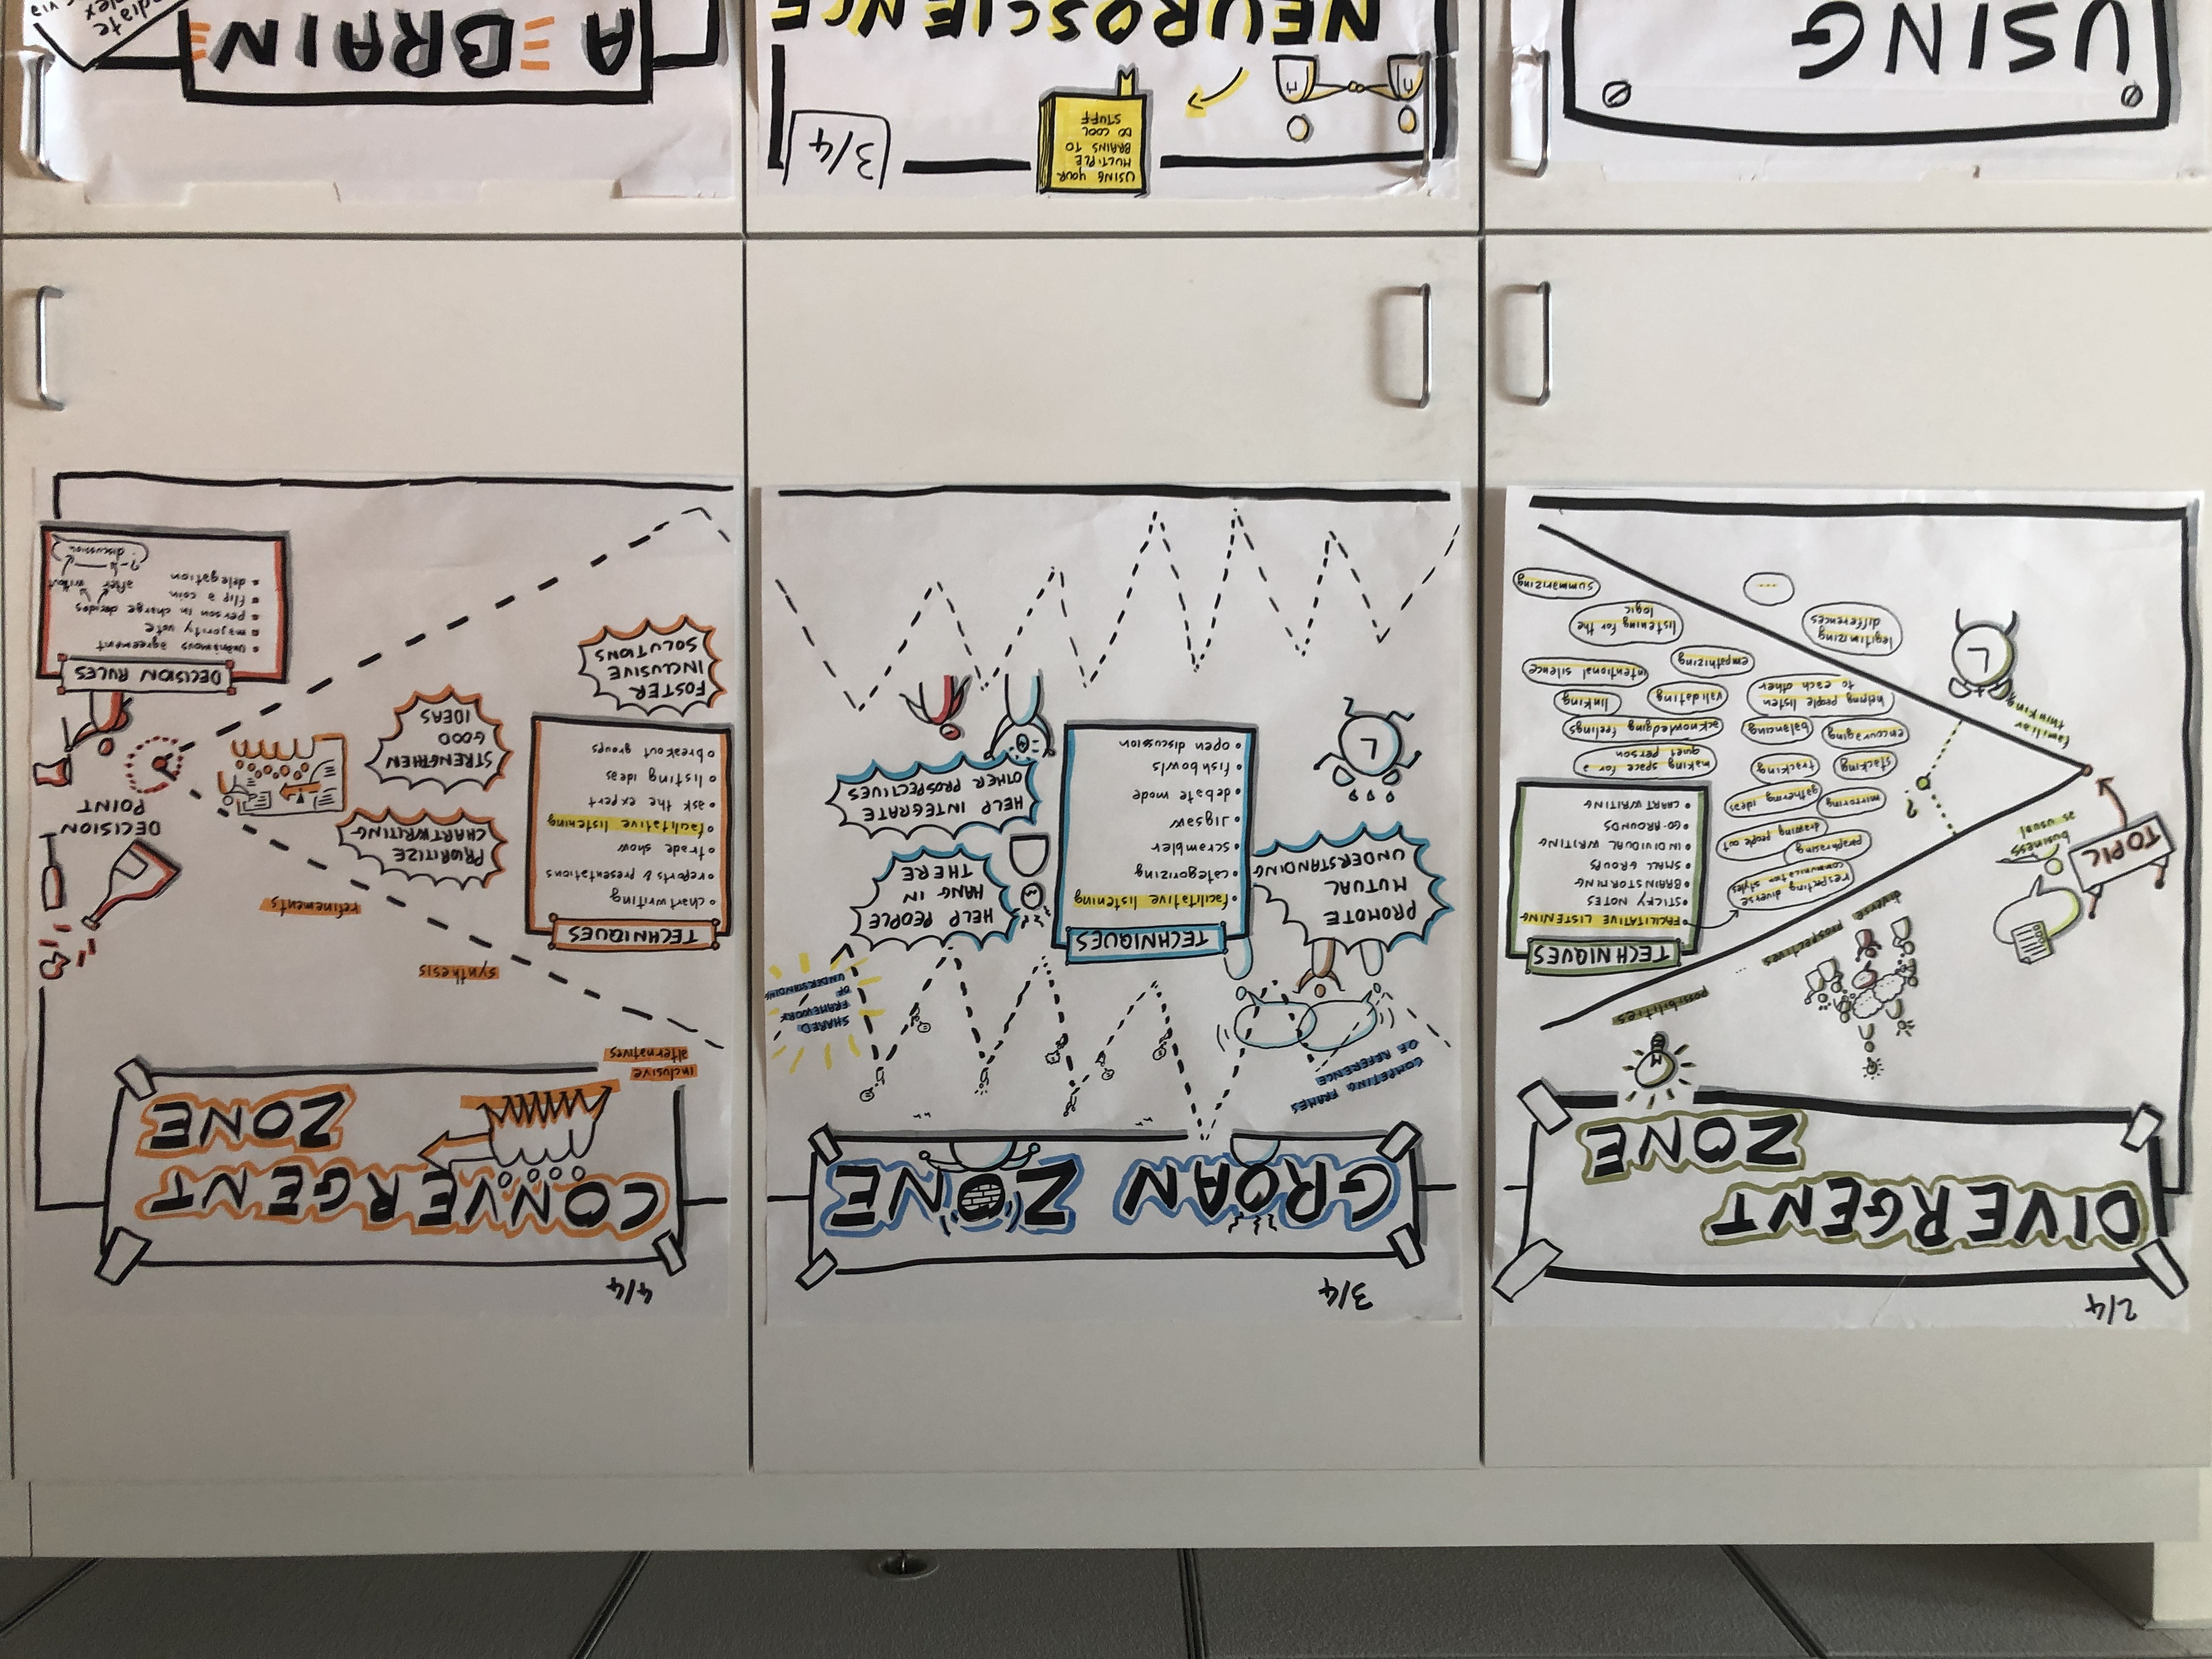 2/4
DIVERGENT
ZONE
possibilities
...
diverse prospectives
TOPIC
business
as usual
familiar
thinking
?
TECHNIQUES
• FACILITATIVE LISTENING
• STICKY NOTES
• BRAINSTORMING
• SMALL GROUPS
• INDIVIDUAL WRITING
• GO-AROUNDS
• CHART WRITING
respecting diverse
communication styles
paraphrasing
drawing people out
mirroring
gathering ideas
stacking
tracking
making space for a
quiet person
encouraging
balancing
acknowledging feelings
helping people listen
to each other
validating
linking
empathizing
intentional silence
legitimizing
differences
listening for the
logic
....
summarizing
3/4
GROAN ZONE
COMPETING FRAMES
OF REFERENCE
SHARED
FRAMEWORK
OF
UNDERSTANDING
PROMOTE
MUTUAL
UNDERSTANDING
TECHNIQUES
• facilitative listening
• categorizing
• scrambler
• Jigsaw
• debate mode
• fishbowls
• open discussion
HELP PEOPLE
HANG IN
THERE
HELP INTEGRATE
OTHER PROSPECTIVES
4/4
CONVERGENT
ZONE
inclusive
alternatives
synthesis
refinements
TECHNIQUES
• chartwriting
• reports & presentations
• trade show
• facilitative listening
• ask the expert
• listing ideas
• breakout groups
PRIORITIZE
CHARTWRITING
STRENGTHEN
GOOD
IDEAS
FOSTER
INCLUSIVE
SOLUTIONS
DECISION
POINT
DECISION RULES
• unanimous agreement
• majority vote
• person in charge decides
• flip a coin
• delegation
after
without
?
discussion
USING
USING YOUR
MULTIPLE
BRAINS TO
DO COOL
STUFF
3/4
NEUROSCIENCE
A BRAIN
via